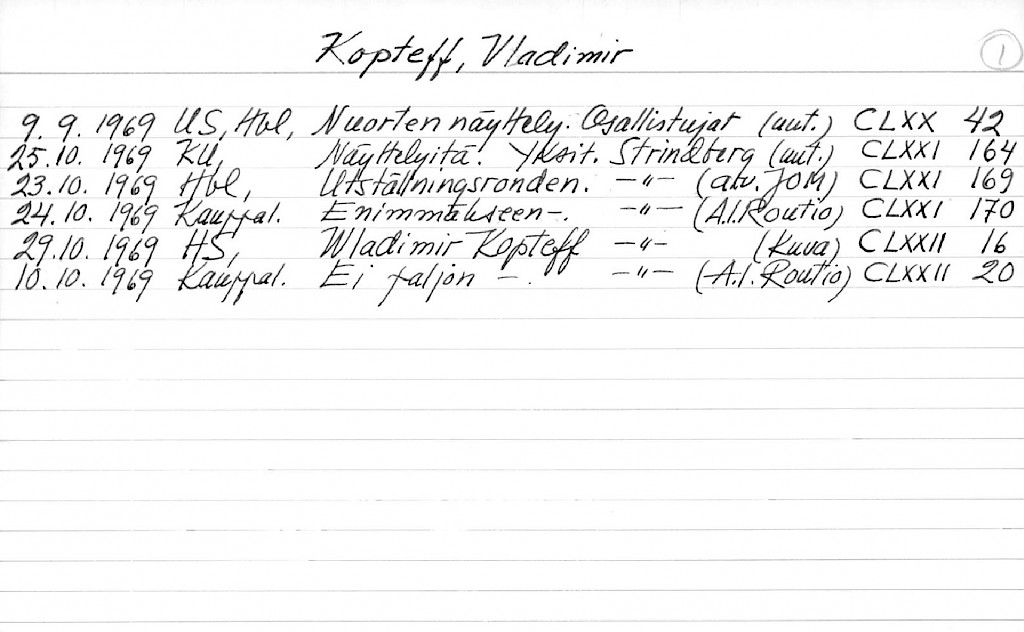 Kopteff, Vladimir
1
9. 9. 1969 US, Hbl, Nuorten näyttely. Osallistujat (uut.) CLXX 42
25. 10. 1969 KU, Näyttelyitä. Yksit. Strindberg (uut.) CLXXI 164
23. 10. 1969 Hbl, Utställningsronden. —"— (arv. JOM) CLXXI 169
24. 10. 1969 Kauppal. Enimmäkseen -. —"— (A.I. Routio) CLXXI 170
29. 10. 1969 HS, Wladimir Kopteff —"— (Kuva) CLXXII 16
10. 10. 1969 Kauppal. Ei paljon -. —"— (A.I. Routio) CLXXII 20